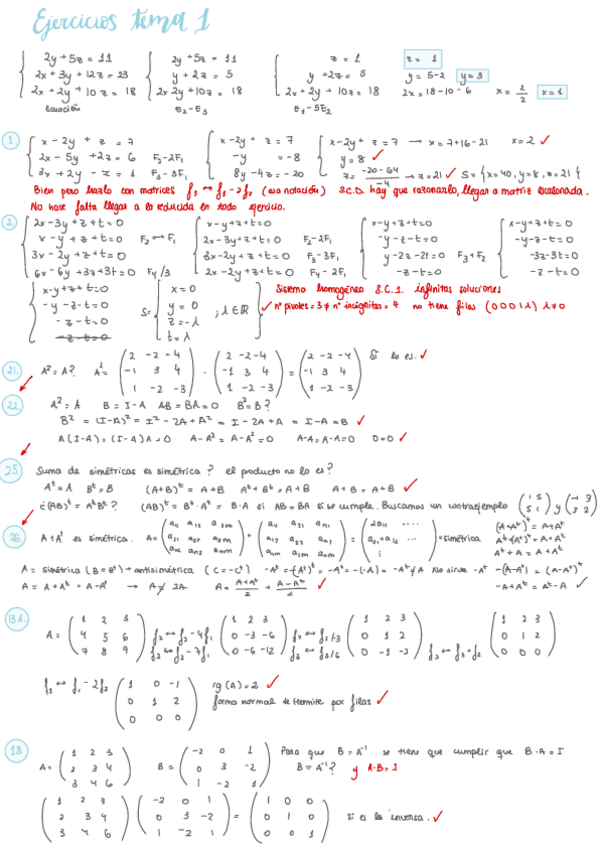 Ejercicios tema 1
2y+5z=11
2x+3y+12z=23
2x+2y+10z=18
Ecuación
2y+5z=11
y+2z=5
2x+2y+10z=18
E₂-E₃
z=1
y+2z=5
2x+2y+10z=18
E₁-5E₂
z=1
y=5-2 y=3
2x=18-10-6 x=2/2 x=1
1
x-2y+z=7
2x-5y+2z=6 F₂-2F₁
3x+2y-z=1 F₃-3F₁
x-2y+z=7
-y=-8
8y-4z=-20
x-2y+z=7 → x=7+16-21 x=2 ✓
y=8 ✓
z=(-20-64)/-4 → z=21 ✓ S={x=40, y=8, z=21}
Bien pero hazlo con matrices f₂ ↔ f₂-2f₁ (esa notación) S.C.D. hay que razonarlo, llegar a matriz escalonada.
No hace falta llegar a la reducida en todo ejercicio.
2
2x-3y+z+t=0
x-y+z+t=0 F₂↔F₁
3x-2y+z+t=0
6x-6y+3z+3t=0 F₄/3
x-y+z+t=0
2x-3y+z+t=0 F₂-2F₁
3x-2y+z+t=0 F₃-3F₁
2x-2y+z+t=0 F₄-2F₁
x-y+z+t=0
-y-z-t=0
y-2z-2t=0 F₃+F₂
-z-t=0
x-y+z+t=0
-y-z-t=0
-3z-3t=0
-z-t=0
x-y+z+t=0
-y-z-t=0
-z-t=0
-z-t=0
S= x=0
y=0
z=-λ
t=λ
; λ∈ℝ
Sistema homogéneo S.C.I. infinitas soluciones
✓ nº pivotes=3≠nº incógnitas=4 no tiene filas (0 0 0 | λ) λ≠0
21. A²=A? A²= (2 -2 -4
-1 3 4
1 -2 -3) · (2 -2 -4
-1 3 4
1 -2 -3) = (2 -2 -4
-1 3 4
1 -2 -3) Sí lo es. ✓
22. A²=A B=I-A AB=BA=0 B²=B?
B²=(I-A)²=I²-2A+A²=I-2A+A=I-A=B ✓
A(I-A)=(I-A)A=0 A-A²=A-A²=0 A-A=A-A=0 0=0 ✓
25. Suma de simétricas es simétrica? el producto no lo es?
Aᵗ=A Bᵗ=B (A+B)ᵗ=A+B Aᵗ+Bᵗ=A+B A+B=A+B ✓
¿(AB)ᵗ=AᵗBᵗ? (AB)ᵗ=Bᵗ·Aᵗ=B·A si AB=BA si se cumple. Buscamos un contraejemplo (1 5
5 1) y (-1 3
3 2)
26. A+Aᵗ es simétrica. =simétrica
(A+Aᵗ)ᵗ=A+Aᵗ
Aᵗ+(Aᵗ)ᵗ=A+Aᵗ
Aᵗ+A=A+Aᵗ
A=simétrica (B=Bᵗ)+antisimétrica (C=-Cᵗ) No sirve -Aᵗ
-(A-Aᵗ)=(A-Aᵗ)ᵗ
-A+Aᵗ=Aᵗ-A ✓
A=A+Aᵗ+A-Aᵗ → A≠2A A=(A+Aᵗ)/2+(A-Aᵗ)/2 ✓
BA.
A= (1 2 3
4 5 6
7 8 9) f₂↔f₂-4f₁
f₃↔f₃-7f₁
(1 2 3
0 -3 -6
0 -6 -12) f₂↔f₂/-3
f₃↔f₃/6
(1 2 3
0 1 2
0 -1 -2) f₃↔f₃+f₂
(1 2 3
0 1 2
0 0 0)
f₁↔f₁-2f₂ (1 0 -1
0 1 2
0 0 0)
rg(A)=2 ✓
forma normal de Hermite por filas ✓
18
A= (1 2 3
2 3 4
3 4 6)
B= (-2 0 1
0 3 -2
1 -2 1)
Para que B=A⁻¹ se tiene que cumplir que B·A=I
B=A⁻¹? y A·B=I
(1 2 3
2 3 4
3 4 6) (-2 0 1
0 3 -2
1 -2 1) = (1 0 0
0 1 0
0 0 1) Si es la inversa. ✓